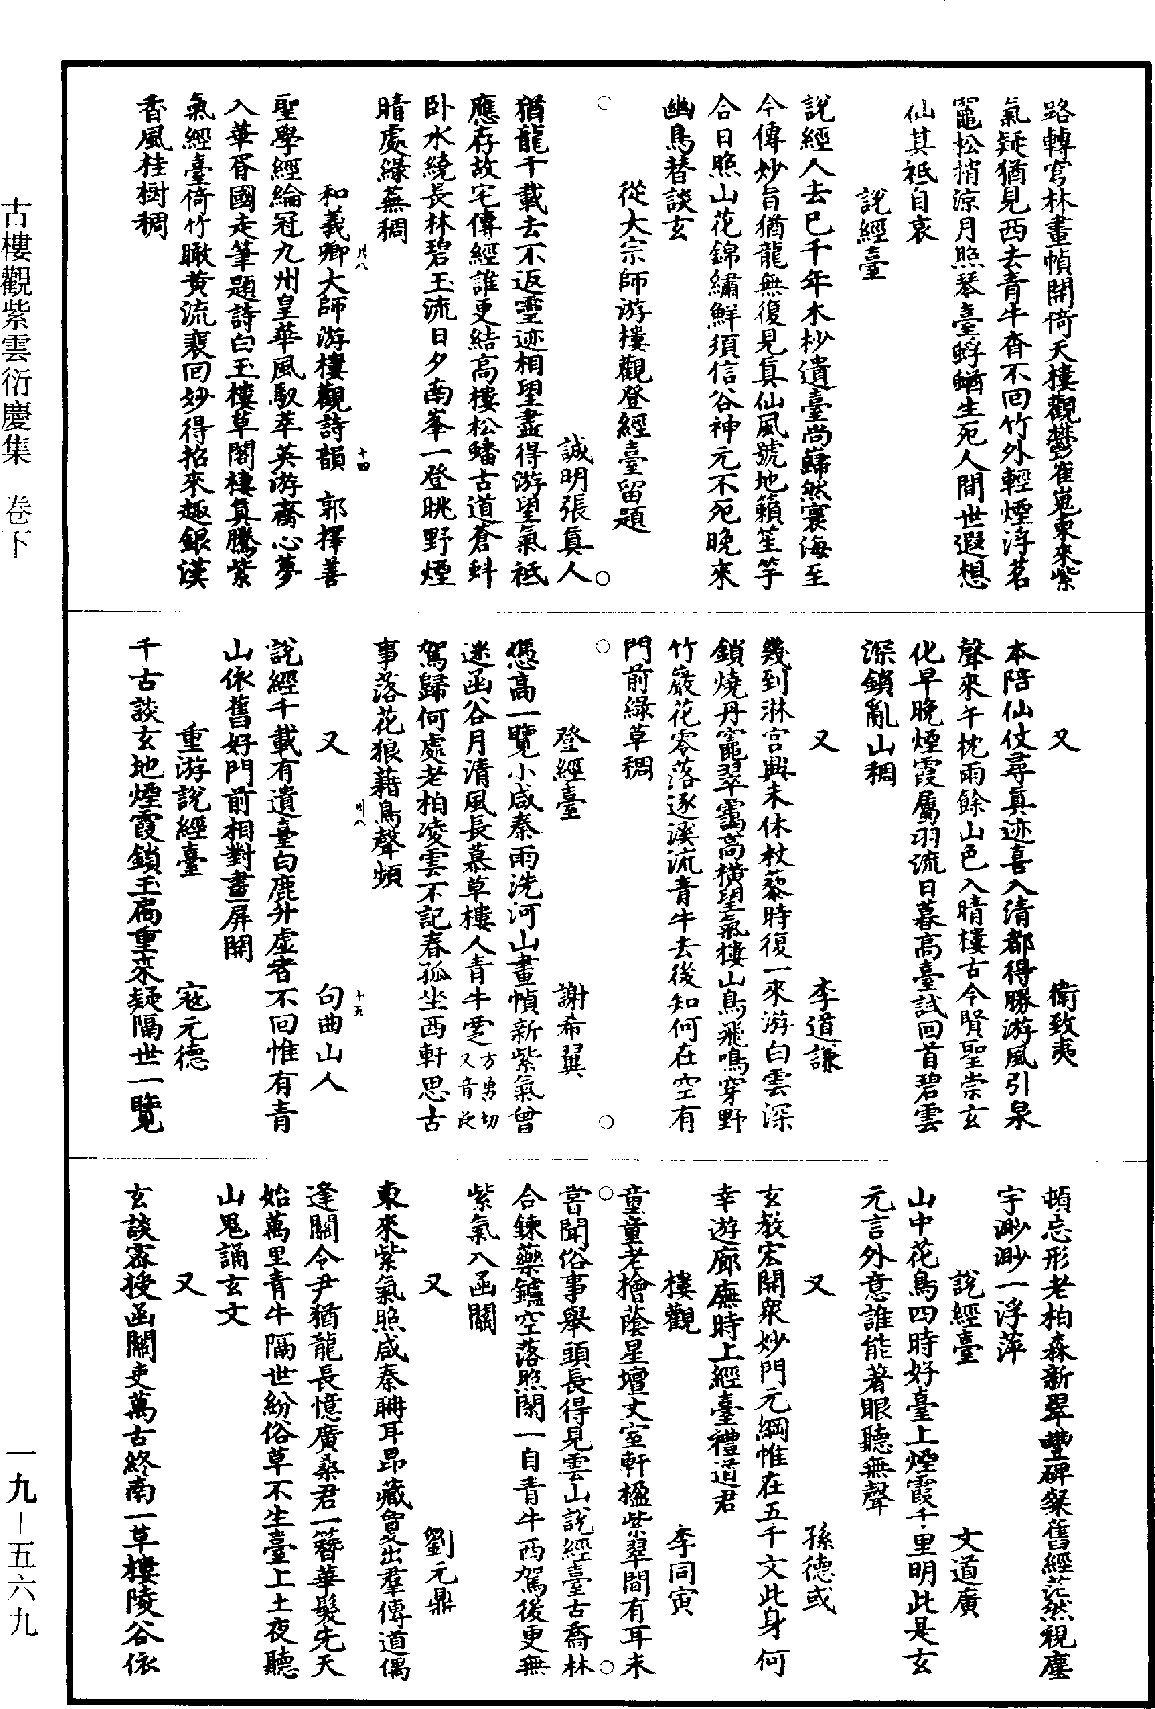 路轉宮林畫幀開倚天樓觀鬱崔嵬東來紫
氣疑猶見西去青牛杳不回竹外輕煙浮茗
竈松梢涼月照琴臺蜉蝤生死人間世遐想
仙其祗自哀
說經臺
說經人去已千年木杪遺臺尚巋然寰海至
今傳妙旨猶龍無復見真仙風號地籟笙竽
合日照山花錦繡鮮須信谷神元不死晚來
幽鳥替談玄
從大宗師游樓觀登經臺留題
誠明張真人
猶龍千載去不返靈迹相望盡得游望氣祗
應存故宅傳經誰更結高樓松蟠古道蒼虯
卧水繞長林碧玉流日夕南峯一登眺野煙
晴處綠蕪稠
和義卿大師游樓觀詩韻 郭擇善
聖學經綸冠九州皇華風馭萃英游齋心夢
入華胥國走筆題詩白玉樓草閣棲真騰紫
氣經臺倚竹瞰黄流裵回妙得招來趣銀漢
香風桂樹稠
又 衛致夷
本陪仙仗尋真迹喜入清都得勝游風引泉
聲來午枕雨餘山色入晴樓古今賢聖崇玄
化早晚煙霞屬羽流日暮高臺試回首碧雲
深鎖亂山稠
又 李道謙
幾到淋宮興未休杖藜時復一來游白雲深
鎖燒丹竈翠靄高橫望氣樓山鳥飛鳴穿野
竹巖花零落逐溪流青牛去後知何在空有
門前綠草稠
登經臺 謝希翼
憑高一覽小咸秦雨洗河山畫幀新紫氣曾
迷函谷月清風長慕草樓人青牛
駕歸何處老柏凌雲不記春孤坐西軒思古
事落花狼藉鳥聲頻
又 句曲山人
說經千載有遺臺白鹿升虛者不回惟有青
山依舊好門前相對畫屏開
重游說經臺 寇元德
千古談玄地煙霞鎖玉扃重來疑隔世一覽
頓忘形老柏森新翠豐碑粲舊經茫然視塵
宇渺渺一浮萍
說經臺 文道廣
山中花鳥四時好臺上煙霞千里明此是玄
元言外意誰能著眼聽無聲
又 孫德彧
玄教宏開衆妙門元綱惟在五千文此身何
幸遊廊廡時上經臺禮道君
樓觀 李同寅
童童老檜蔭星壇丈室軒楹紫翠間有耳未
嘗聞俗事舉頭長得見雲山說經臺古喬林
合鍊藥鑪空落照閑一自青牛西駕後更無
紫氣入函關
又 劉元鼎
東來紫氣照咸秦聃耳昂藏敻出羣傳道偶
逢關令尹猶龍長憶廣桑君一簪華髮先天
始萬里青牛隔世紛俗草不生臺上土夜聽
山鬼誦玄文
又
玄談密授函關吏萬古終南一草樓陵谷依
古樓觀紫雲衍慶集 卷下
一九－五六九